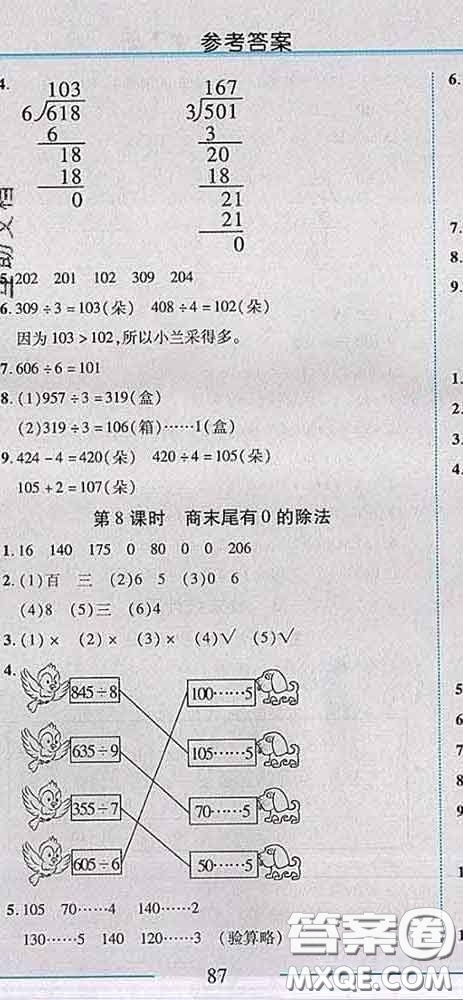 参考答案
4.
103
6)618
6
18
18
0
167
3)501
3
20
18
21
21
0
5. 202 201 102 309 204
6. 309÷3=103(朵) 408÷4=102(朵)
因为103>102,所以小兰采得多。
7. 606÷6=101
8. (1)957÷3=319(盒)
(2)319÷3=106(箱)……1(盒)
9. 424-4=420(朵) 420÷4=105(朵)
105+2=107(朵)
第8课时 商末尾有0的除法
1. 16 140 175 0 80 0 0 206
2. (1)百 三 (2)6 5 (3)0 6
(4)8 (5)三 (6)4
3. (1)× (2)× (3)× (4)√ (5)√
4.
845÷8 100……5
635÷9 105……5
355÷7 70……5
605÷6 50……5
5. 105 70……4 140……2
130……5 140 120……3 (验算略)
87
6.
7.
8.
9.
1.
2.
3.
4.
5
6
7
8
9
1
答案圈
MXQE.COM